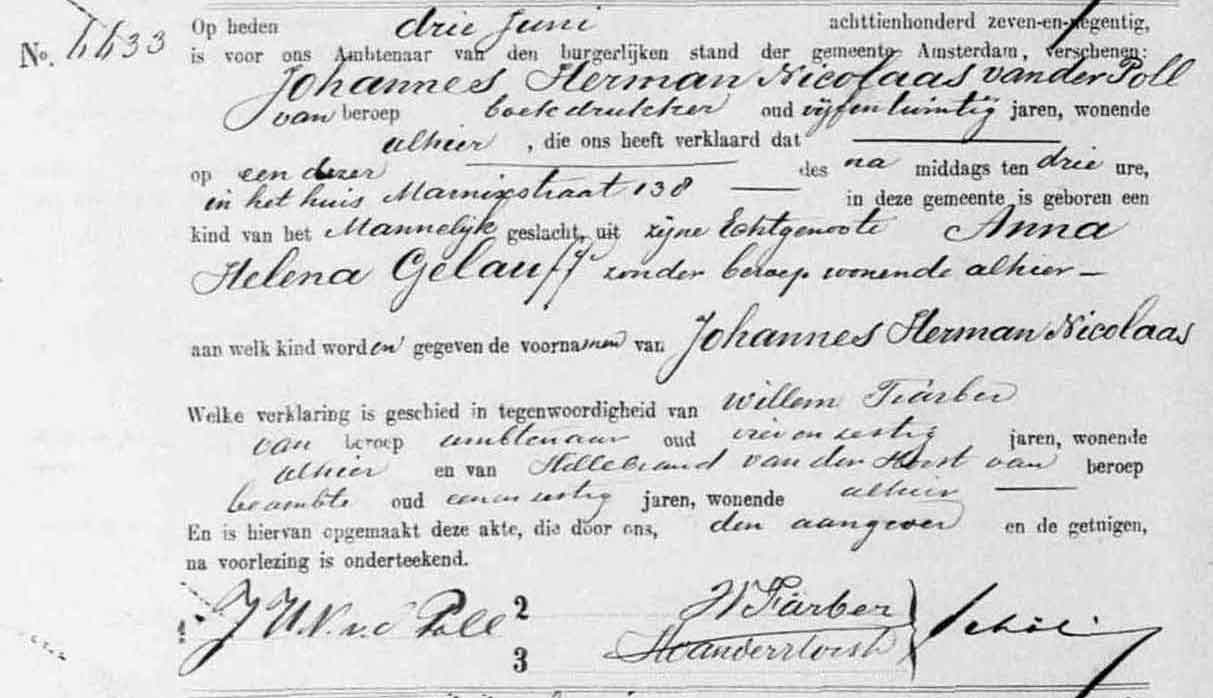 Op heden drie Juni achttienhonderd zeven-en-negentig,
No. 4433 is voor ons Ambtenaar van den burgerlijken stand der gemeente Amsterdam, verschenen:
Johannes Herman Nicolaas van der Poll
van beroep boekdrukker oud vijf en twintig jaren, wonende
alhier, die ons heeft verklaard dat
op een dezer des na middags ten drie ure,
in het huis Marnixstraat 138 in deze gemeente is geboren een
kind van het Mannelijk geslacht, uit zijne Echtgenoote Anna
Helena Gelauff zonder beroep wonende alhier
aan welk kind worden gegeven de voornamen van Johannes Herman Nicolaas
Welke verklaring is geschied in tegenwoordigheid van Willem Färber
van beroep ambtenaar oud en zestig jaren, wonende
alhier en van Hillebrand van der Horst van beroep
beambte oud een en zestig jaren, wonende alhier
En is hiervan opgemaakt deze akte, die door ons, den aangever en de getuigen,
na voorlezing is onderteekend.
1 J H N v d Poll 2 W Färber
3 H van der Horst